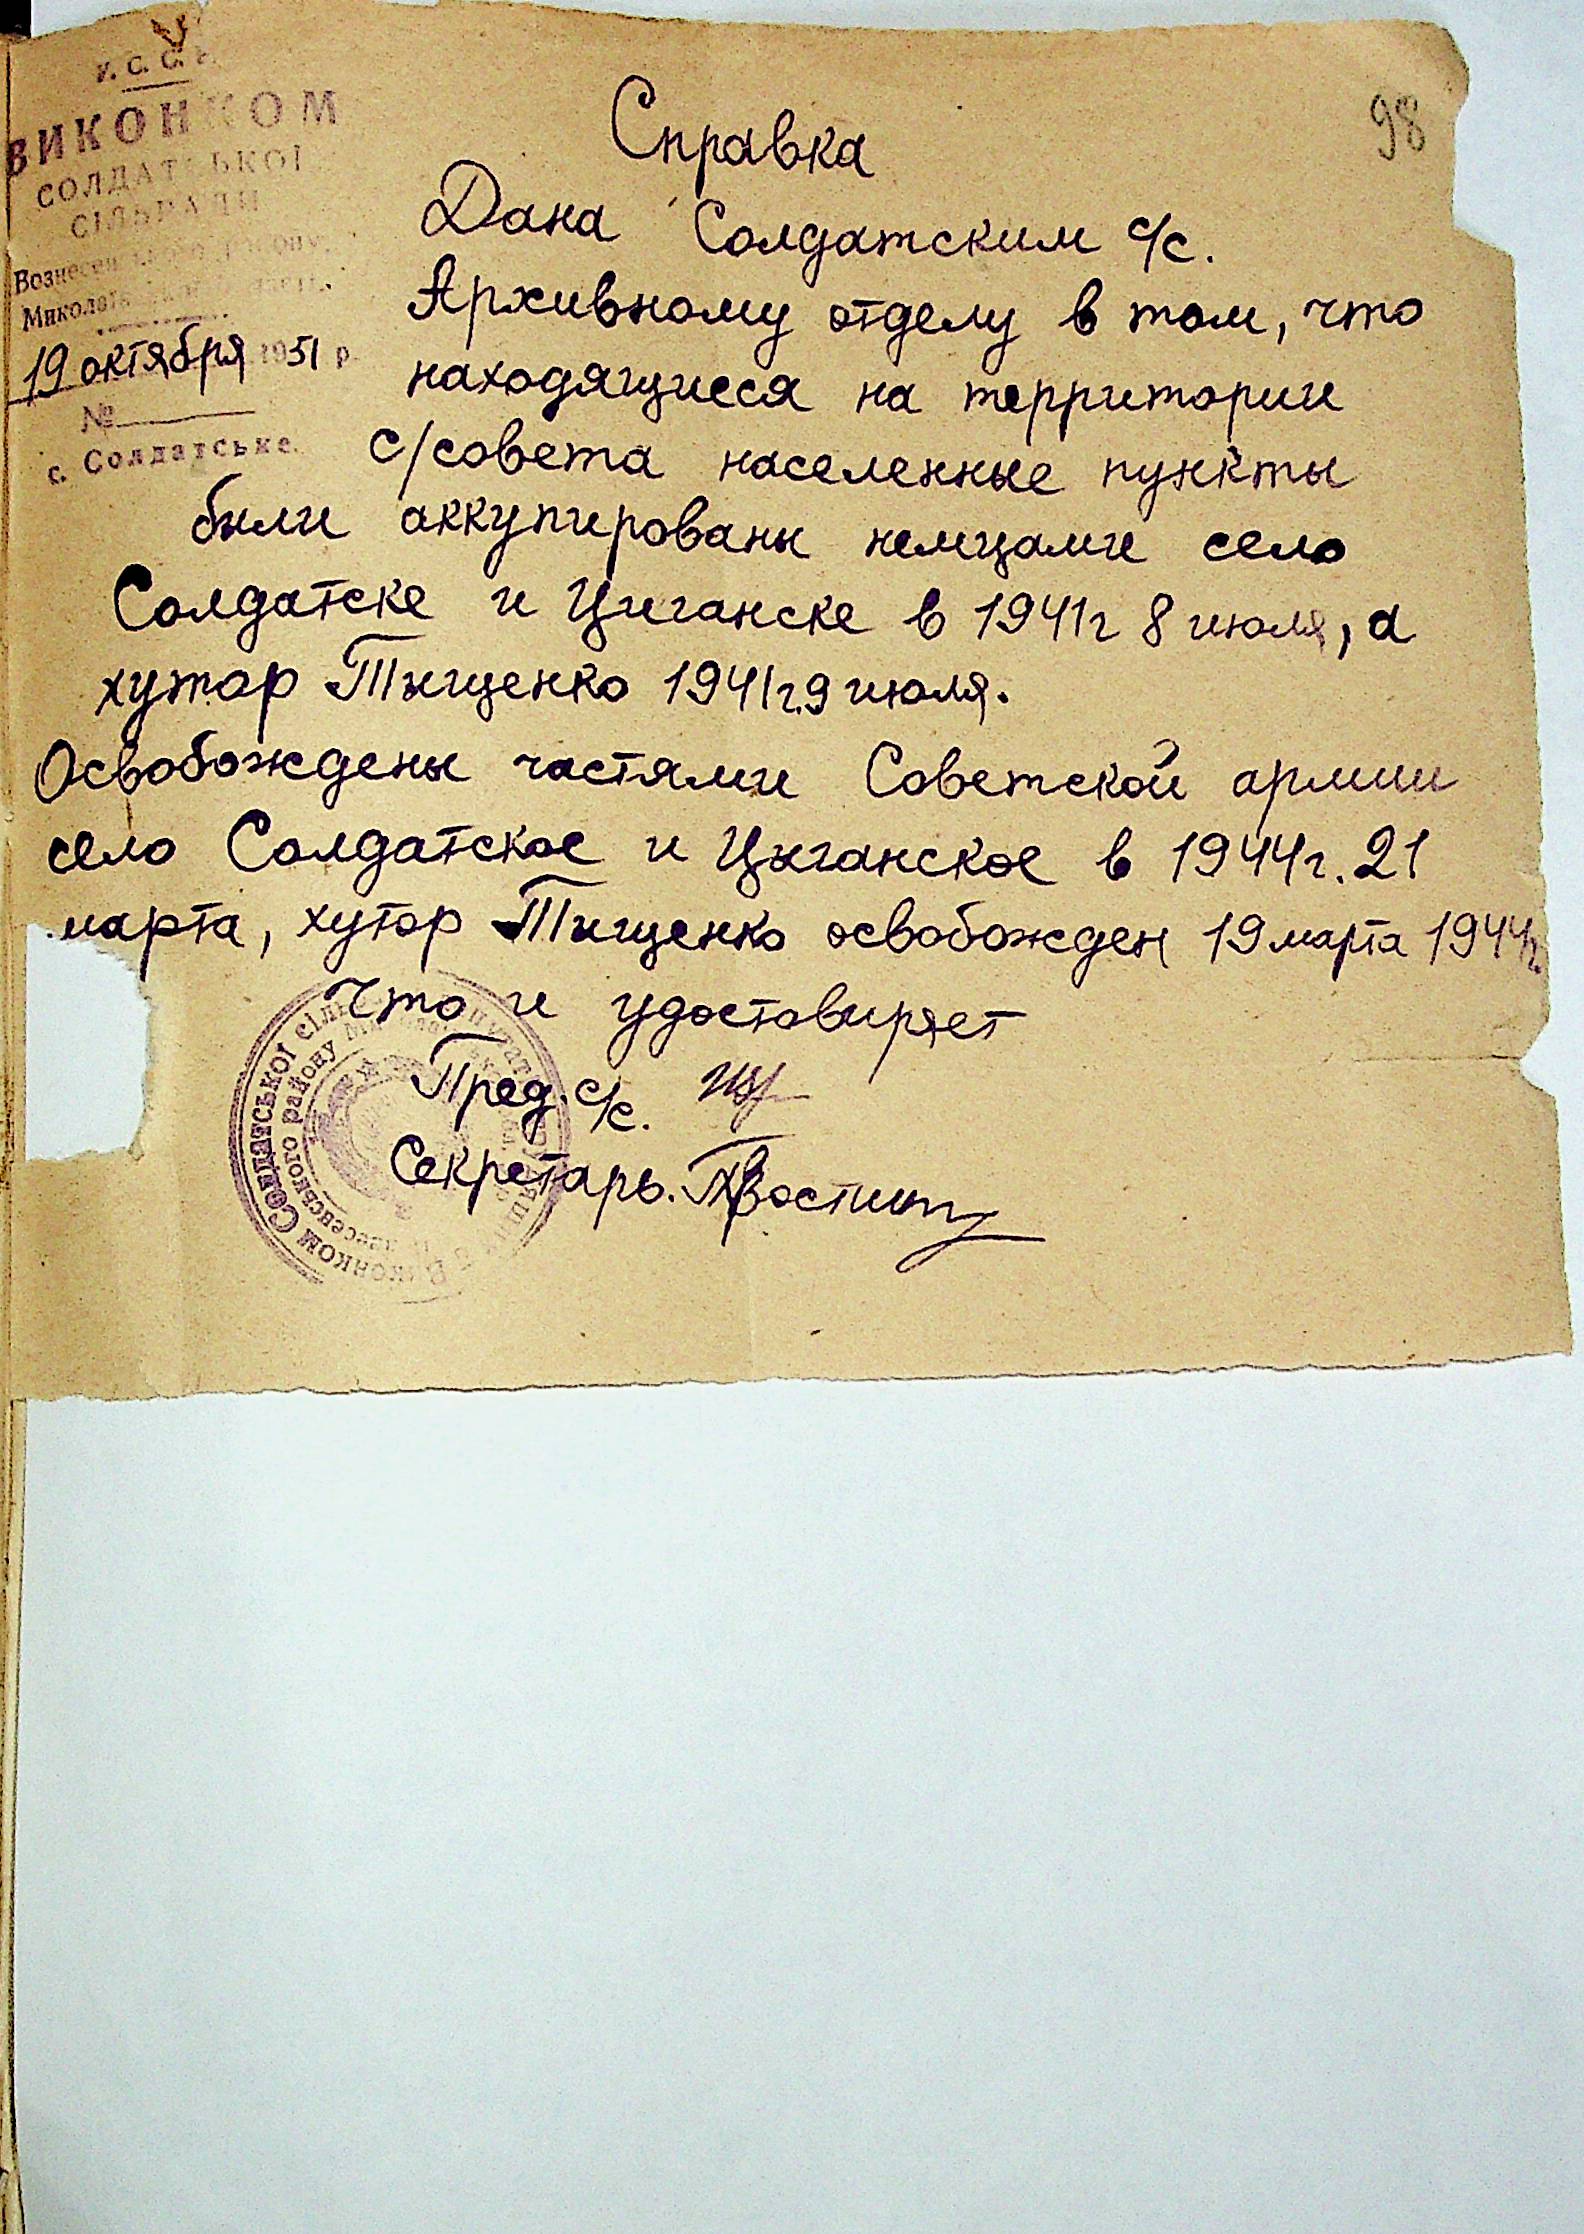 98
У.С.С.Р.
ВИКОНКОМ
СОЛДАТСЬКОЇ
СІЛЬРАДИ
19 октября 1951 р.
№
с. Солдатське.
Справка
Дана Солдатским с/с.
Архивному отделу в том, что
находящиеся на территории
с/совета населенные пункты
были аккупированы немцами село
Солдатске и Циганске в 1941г 8 июля, а
хутор Тыщенко 1941г. 9 июля.
Освобождены частями Советской армии
село Солдатское и Цыганское в 1944г. 21
марта, хутор Тищенко освобожден 19 марта 1944г.
Что и удостовиряет
Пред. с/с.
Секретарь.